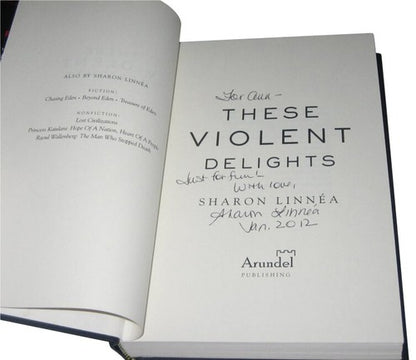 ALSO BY SHARON LINNÉA
FICTION:
Chasing Eden • Beyond Eden • Treasure of Eden
NONFICTION:
Lost Civilizations
Princess Kaiulani: Hope Of A Nation, Heart Of A People
Raoul Wallenberg: The Man Who Stopped Death
For Ann –
THESE
VIOLENT
DELIGHTS
Just for fun!
With love,
SHARON LINNÉA
Sharon Linnéa
Jan. 2012
Arundel
PUBLISHING